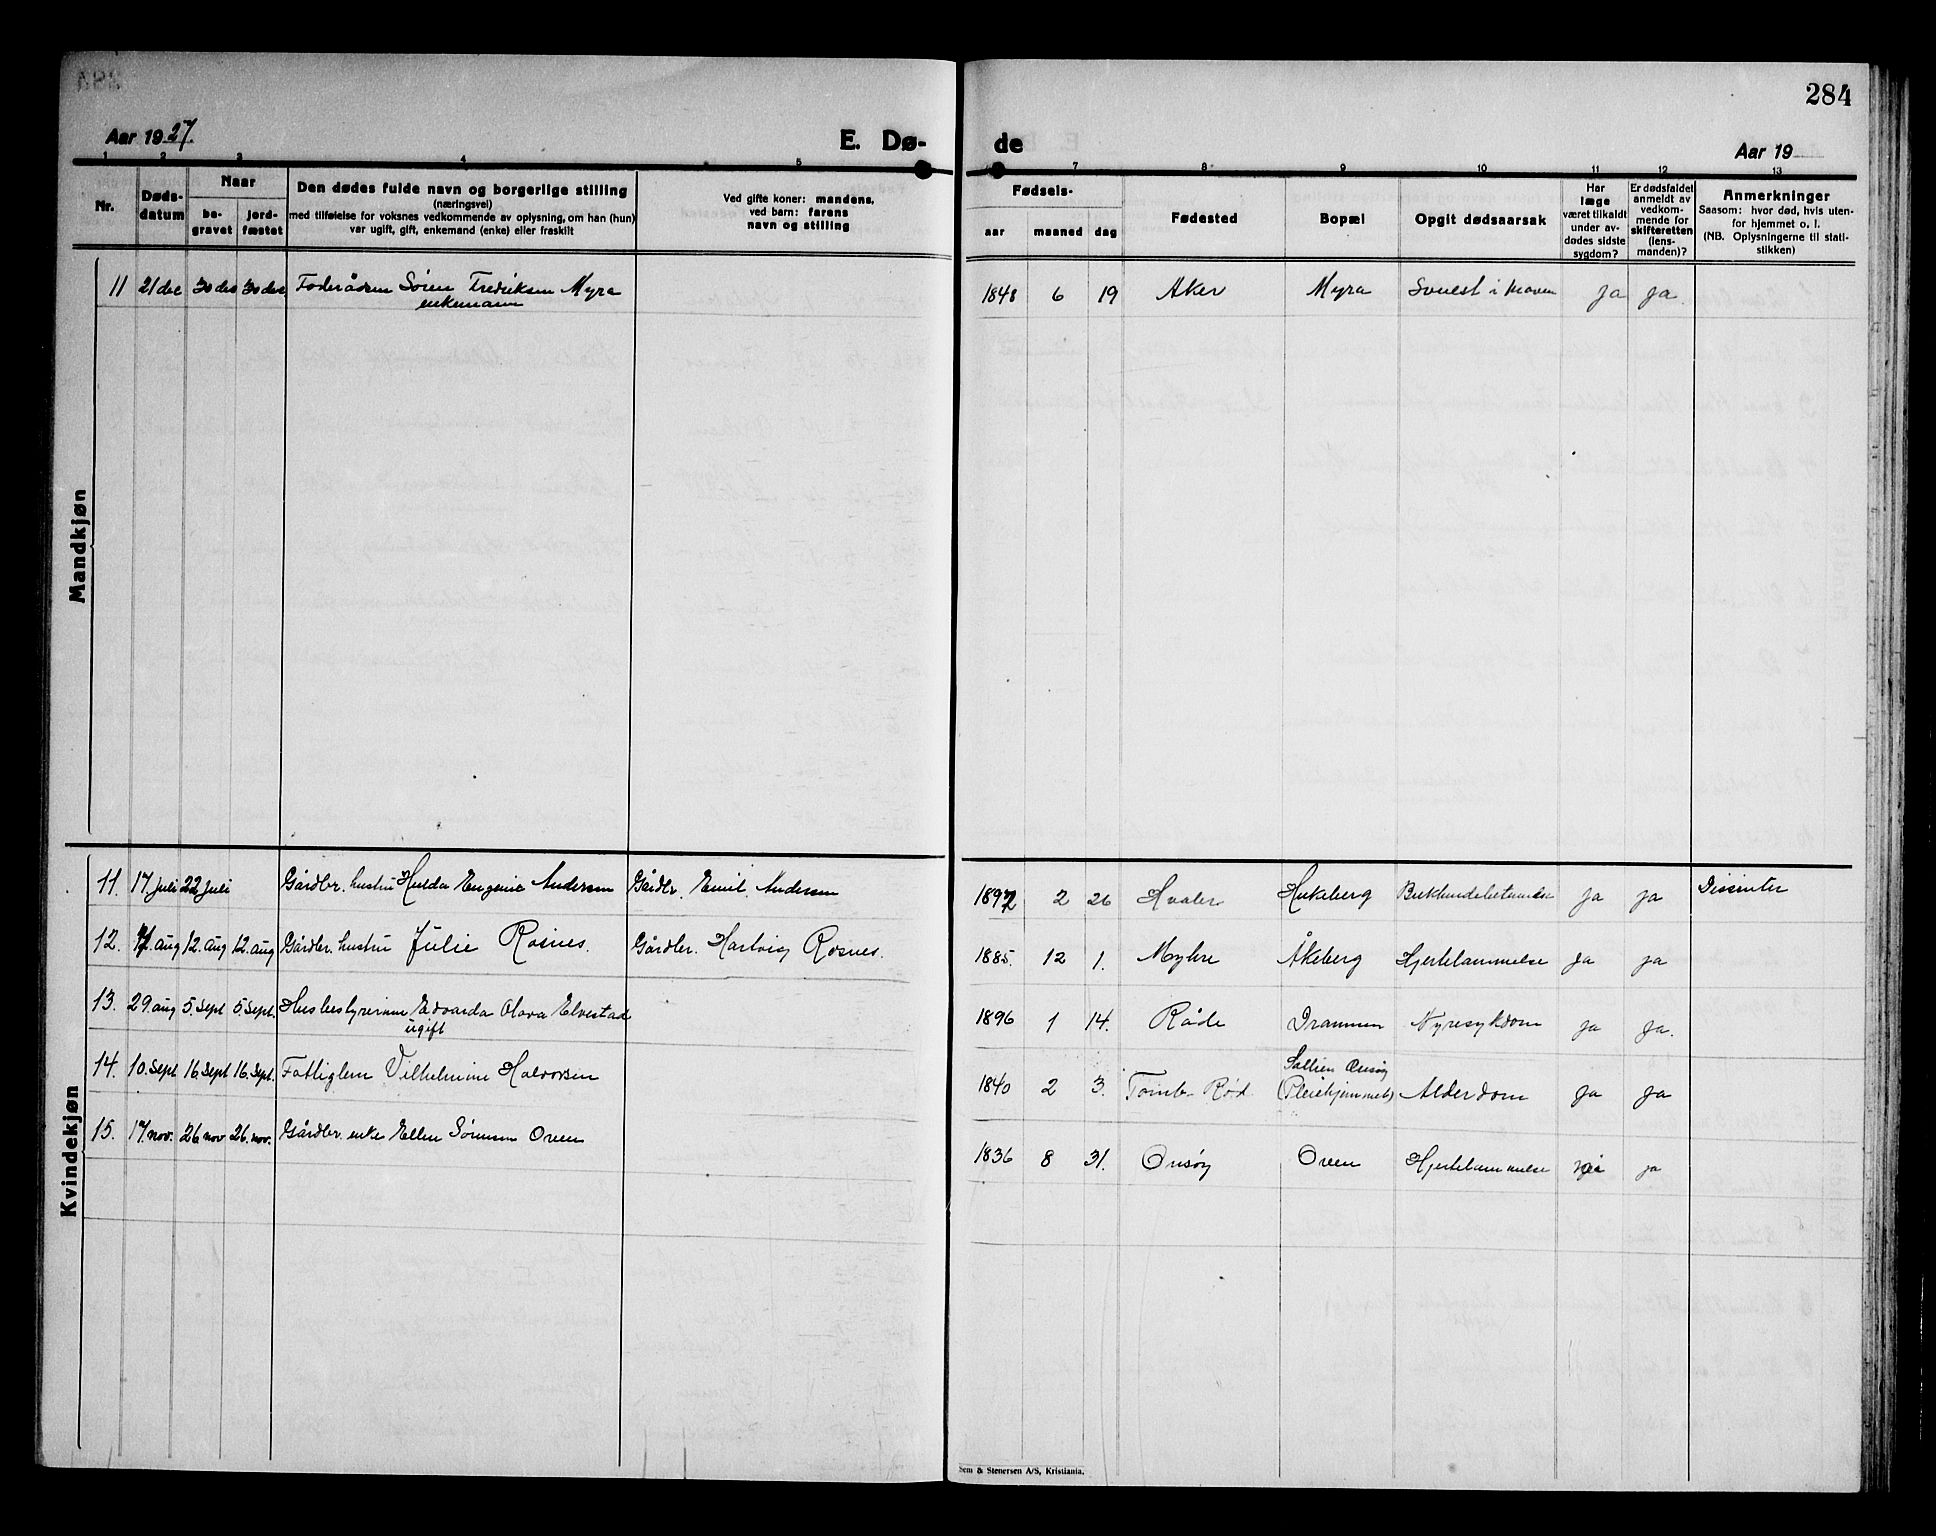 284
Aar 1927.
E. Dø-
de
Aar 19
1 2 3 4 5 7 8 9 10 11 12 13
Nr.
Døds-
datum
Naar
be-
gravet
jord-
fæstet
Den dødes fulde navn og borgerlige stilling
(næringsvei)
med tilføielse for voksnes vedkommende av oplysning, om han (hun)
var ugift, gift, enkemand (enke) eller fraskilt
Ved gifte koner: mandens,
ved barn: farens
navn og stilling
Fødsels-
aar maaned dag
Fødested
Bopæl
Opgit dødsaarsak
Har
læge
været tilkaldt
under av-
dødes sidste
sygdom?
Er dødsfaldet
anmeldt av
vedkom-
mende for
skifteretten
(lens-
manden)?
Anmerkninger
Saasom: hvor død, hvis uten-
for hjemmet o. l.
(NB. Oplysningerne til stati-
stikken)
Mandkjøn
11 21 dec 30 des 30 des Foderådsm Søren Fredriksen Myra 1848 6 19 Aker Myra Svulst i maven Ja Ja.
enkemann
Kvindekjøn
11. 17 juli 22 juli Gårdbr. hustru Hulda Eugenie Andersen Gårdbr. Emil Andersen 1892 2 26 Hvaler Hukeberg ja ja Dissenter
12. 7. aug 12. aug 12. aug Gårdbr. hustru Julie Rosnes. Gårdbr. Hartvig Rosnes. 1885. 12 1. Myhre Åkeberg Hjertelammelse Ja ja
13. 29. aug 5. sept 5. sept. Husbestyrerinne Edvarda Olava Elvestad 1896 1 14. Råde Drammen Nyresykdom ja Ja.
ugift
14. 10. sept 16 sept 16. sept. Fattiglem Vilhelmine Halvorsen 1840 2 3. Tomb Rød Sollien Onsøy
(Pleiehjemmet) Alderdom Ja Ja
15. 17. nov. 26 nov 26. nov. Gårdbr. enke Ellen Sørensen Oven 1836 8 31. Onsøy Oven Hjertelammelse ja
Sem & Stenersen A/S, Kristiania.